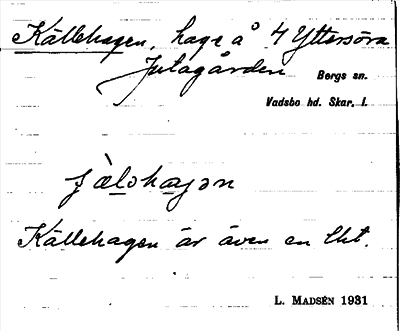 Källehagen, hage å 4 Yttersöra
Jutagården Bergs sn.
Vadsbo hd. Skar. l.
jälohagan
Källehagen är även en lht.
L. MADSÉN 1931